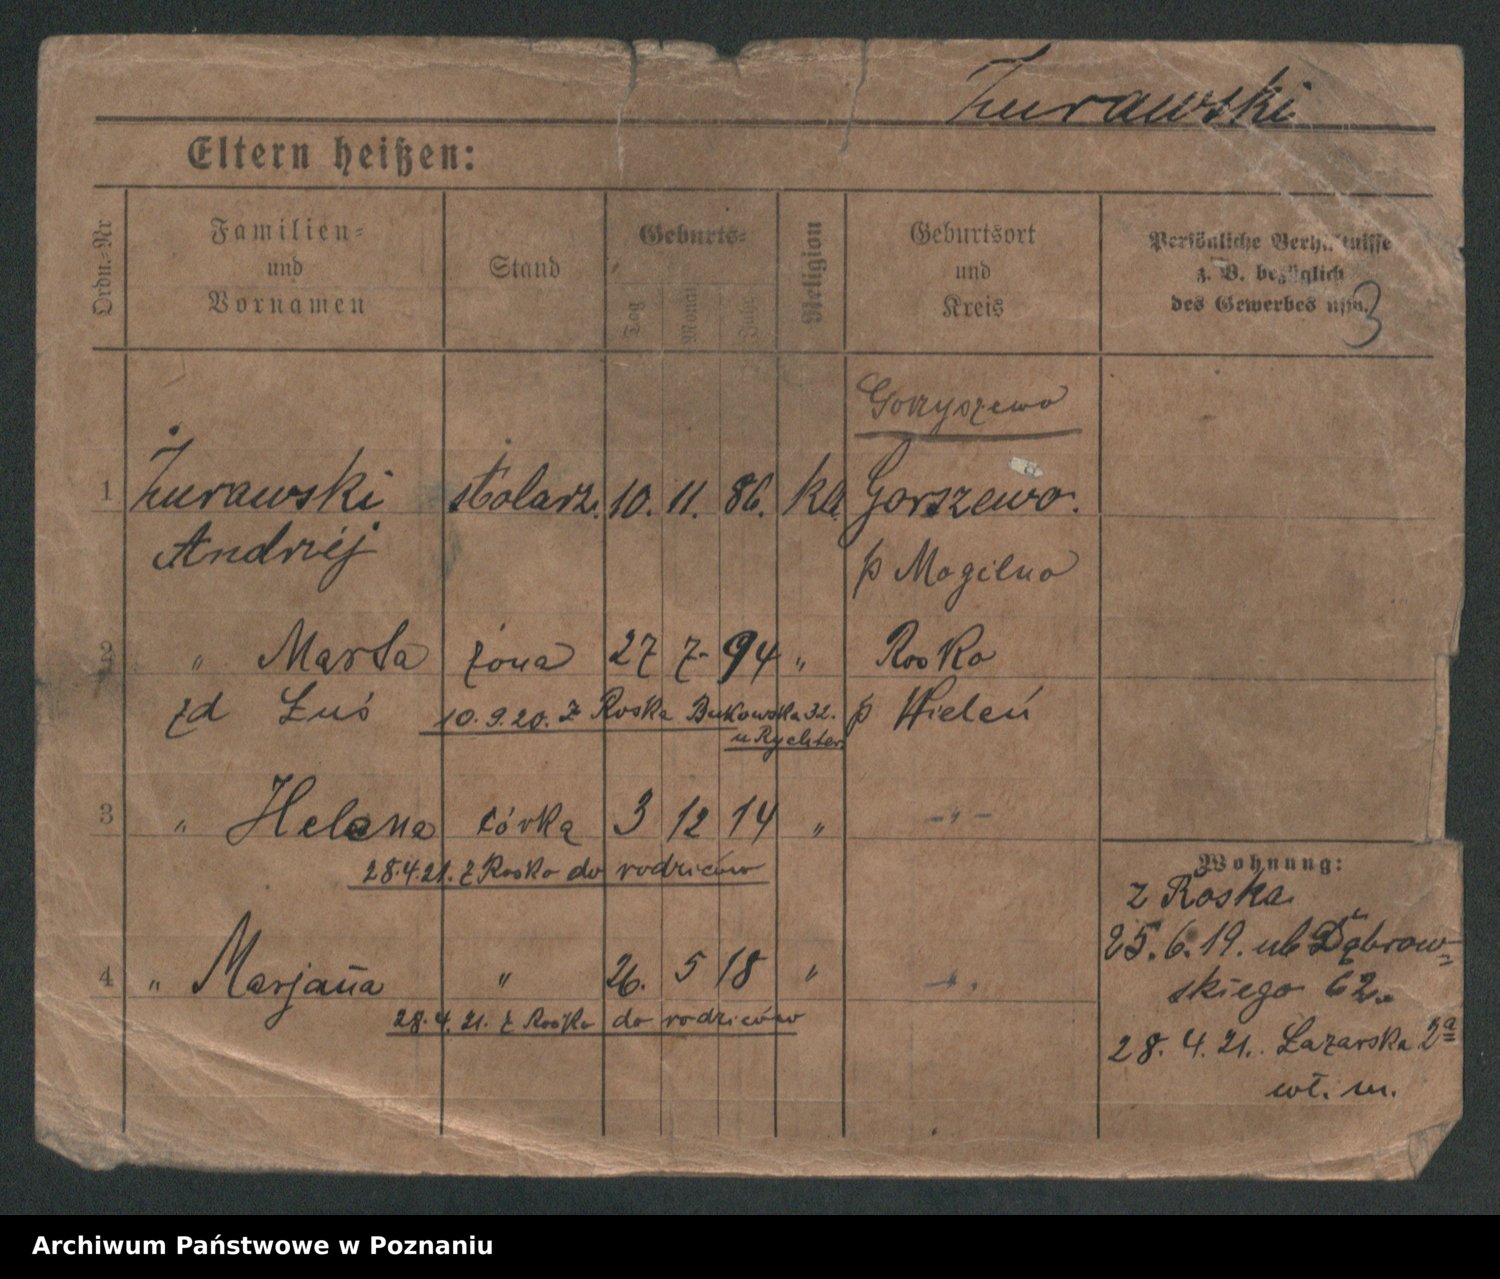 Żurawski
Eltern heißen:
Ordn.-Nr
Familien-
und
Vornamen
Stand
Geburts-
Tag
Monat
Jahr
Religion
Geburtsort
und
Kreis
Persönliche Verhältnisse
z. B. bezüglich
des Gewerbes usw.
3
Goryszewo
1 Żurawski stolarz. 10. 11. 86. kat. Gorszewo.
Andrzéj p Mogilno
2 " Marta żona 27 7. 94 " Rosko
zd Łuś 10.9.20. z Roska Bukowska 32. p Wieleń
u Rychter
3 " Helena córka 3 12 14 " - " -
28.4.21. z Rosko do rodziców
4 " Marjanna " 26. 5 18 " "
28.4.21. z Rosko do rodziców
Wohnung:
z Roska
25.6.19. ul. Dąbrow-
skiego 62.
28. 4. 21. Łazarska 2a
wł. m.
Archiwum Państwowe w Poznaniu